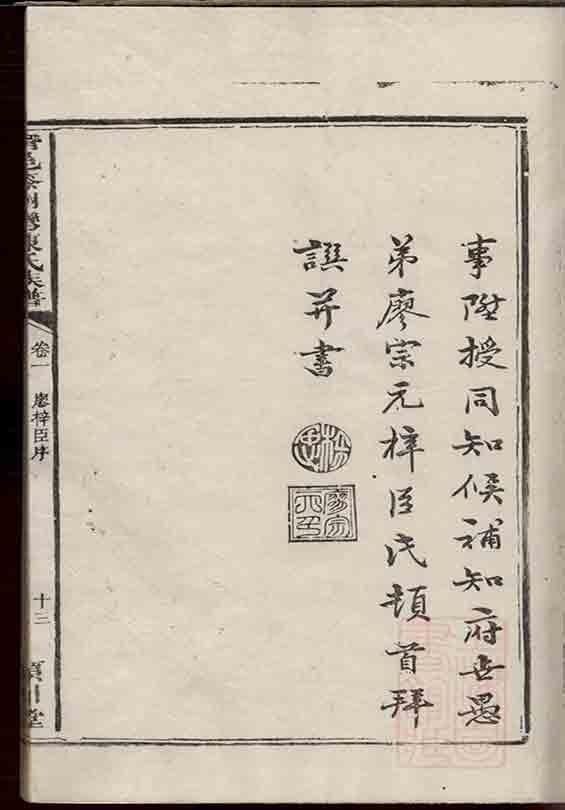 事陞授同知候補知府世愚
弟廖宗元梓臣氏頓首拜
譔并書
氏族譜
卷一
廖梓臣序
十三
堂